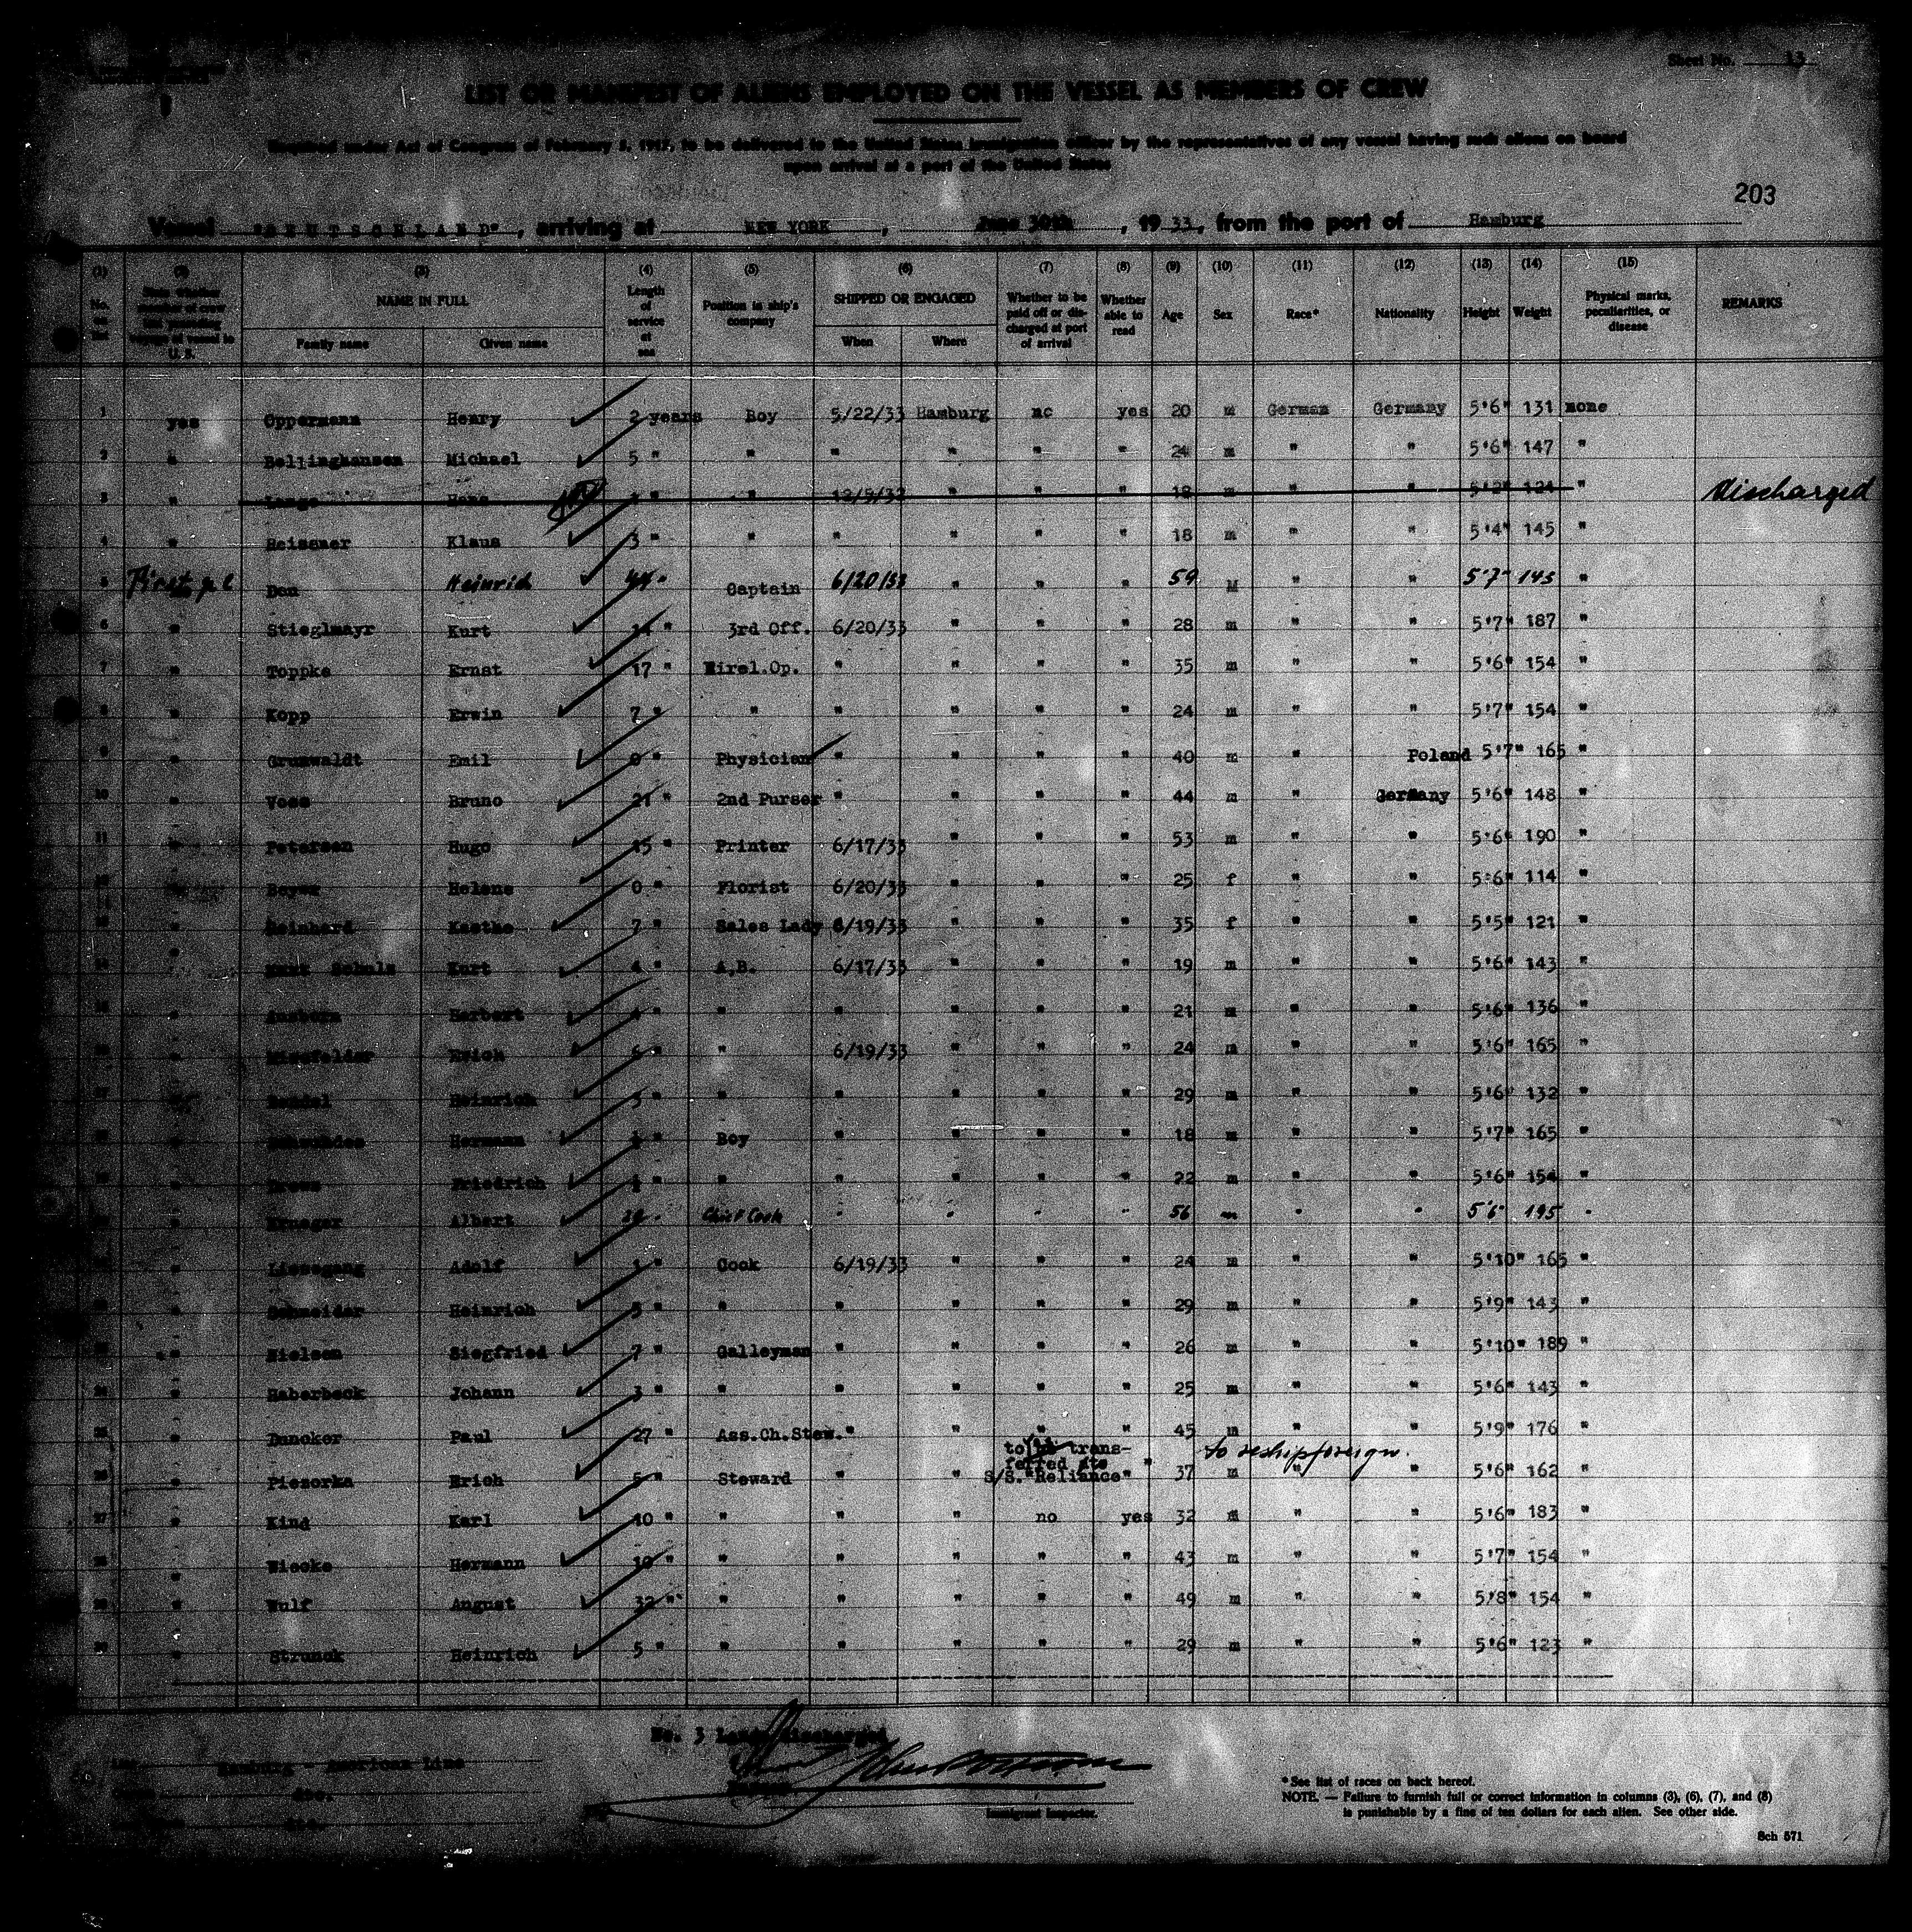 Sheet No. 13
LIST OR MANIFEST OF ALIENS EMPLOYED ON THE VESSEL AS MEMBERS OF CREW
Required under Act of Congress of February 5, 1917, to be delivered to the United States immigration officer by the representatives of any vessel having such aliens on board
upon arrival at a port of the United States
203
Vessel "DEUTSCHLAND", arriving at NEW YORK, June 30th, 1933, from the port of Hamburg
(1) (2) (3) (4) (5) (6) (7) (8) (9) (10) (11) (12) (13) (14) (15)
NAME IN FULL Length of service at sea Position in ship's company SHIPPED OR ENGAGED Whether to be paid off or discharged at port of arrival Whether able to read Age Sex Race* Nationality Height Weight Physical marks, peculiarities, or disease REMARKS
Family name Given name When Where
1 yes Oppermann Henry 2 years Boy 5/22/33 Hamburg no yes 20 m German Germany 5'6" 131 none
2 " Bellinghausen Michael 5 " " " " " " 24 m " " 5'6" 147 "
3 " Lange Hans " " 12/9/32 " " " 18 m " " 5'2" 121 " Discharged
4 " Reissner Klaus 3 " " " " " " 18 m " " 5'4" 145 "
5 Heinrich 44 " Captain 6/20/33 " " " 59 M " " 5'7" 143 "
6 " Stieglmayr Kurt 14 " 3rd Off. 6/20/33 " " " 28 m " " 5'7" 187 "
7 " Toppke Ernst 17 " Wirel.Op. " " " " 35 m " " 5'6" 154 "
8 " Kopp Erwin 7 " " " " " " 24 m " " 5'7" 154 "
9 " Grunwaldt Emil 0 " Physician " " " " 40 m " Poland 5'7" 165 "
10 " Voss Bruno 21 " 2nd Purser " " " " 44 m " Germany 5'6" 148 "
11 " Petersen Hugo 15 " Printer 6/17/33 " " " 53 m " " 5'6" 190 "
12 " Helene 0 " Florist 6/20/33 " " " 25 f " " 5'6" 114 "
13 " Reinhard Kaethe 7 " Sales Lady 6/19/33 " " " 35 f " " 5'5" 121 "
14 " Schulz Kurt 4 " A.B. 6/17/33 " " " 19 m " " 5'6" 143 "
15 " Herbert 4 " " " " " " 21 m " " 5'6" 136 "
16 " Missfelder Erich 6 " " 6/19/33 " " " 24 m " " 5'6" 165 "
17 " Heinrich " " " " " " 29 m " " 5'6" 132 "
18 " Hermann " Boy " " " " 18 m " " 5'7" 165 "
19 " Drews Friedrich 1 " " " " " " 22 m " " 5'6" 154 "
20 " Krueger Albert " Chief Cook " " " " 56 m " " 5'6" 195 "
21 " Liesegang Adolf 1 " Cook 6/19/33 " " " 24 m " " 5'10" 165 "
22 " Schneider Heinrich 5 " " " " " " 29 m " " 5'9" 143 "
23 " Nielsen Siegfried 7 " Galleyman " " " " 26 m " " 5'10" 189 "
24 " Haberbeck Johann 3 " " " " " " 25 m " " 5'6" 143 "
25 " Duncker Paul 27 " Ass.Ch.Stew. " " " " 45 m " " 5'9" 176 "
26 " Piezorka Erich 5 " Steward " " to be transferred to S/S."Reliance" " 37 m to reship foreign. " " 5'6" 162 "
27 " Kind Karl 10 " " " " no yes 32 m " " 5'6" 183 "
28 " Wiecke Hermann 10 " " " " " " 43 m " " 5'7" 154 "
29 " Wulf August 32 " " " " " " 49 m " " 5'8" 154 "
30 " Strunck Heinrich 5 " " " " " " 29 m " " 5'6" 123 "
No. 3 Lange discharged
Hamburg - American Line
dto.
Immigrant Inspector.
*See list of races on back hereof.
NOTE. — Failure to furnish full or correct information in columns (3), (6), (7), and (8)
is punishable by a fine of ten dollars for each alien. See other side.
Sch 571